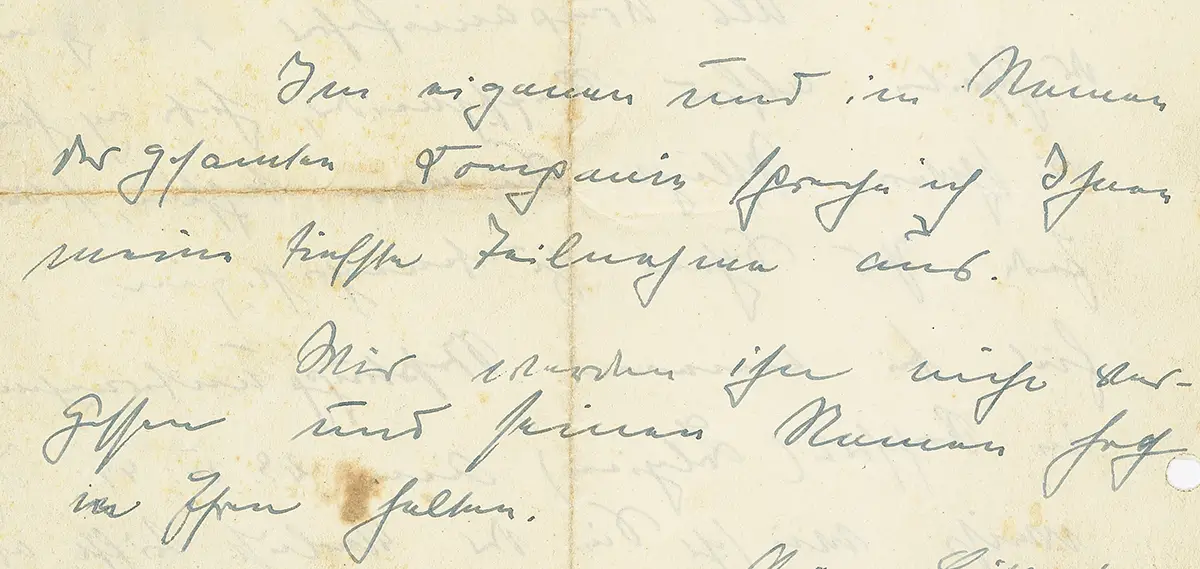 Im eigenen und im Namen
der gesamten Companie spreche ich Ihnen
meine tiefste Teilnahme aus.
Wir werden ihn nicht ver-
gessen und seinen Namen hoch
in Ehren halten.